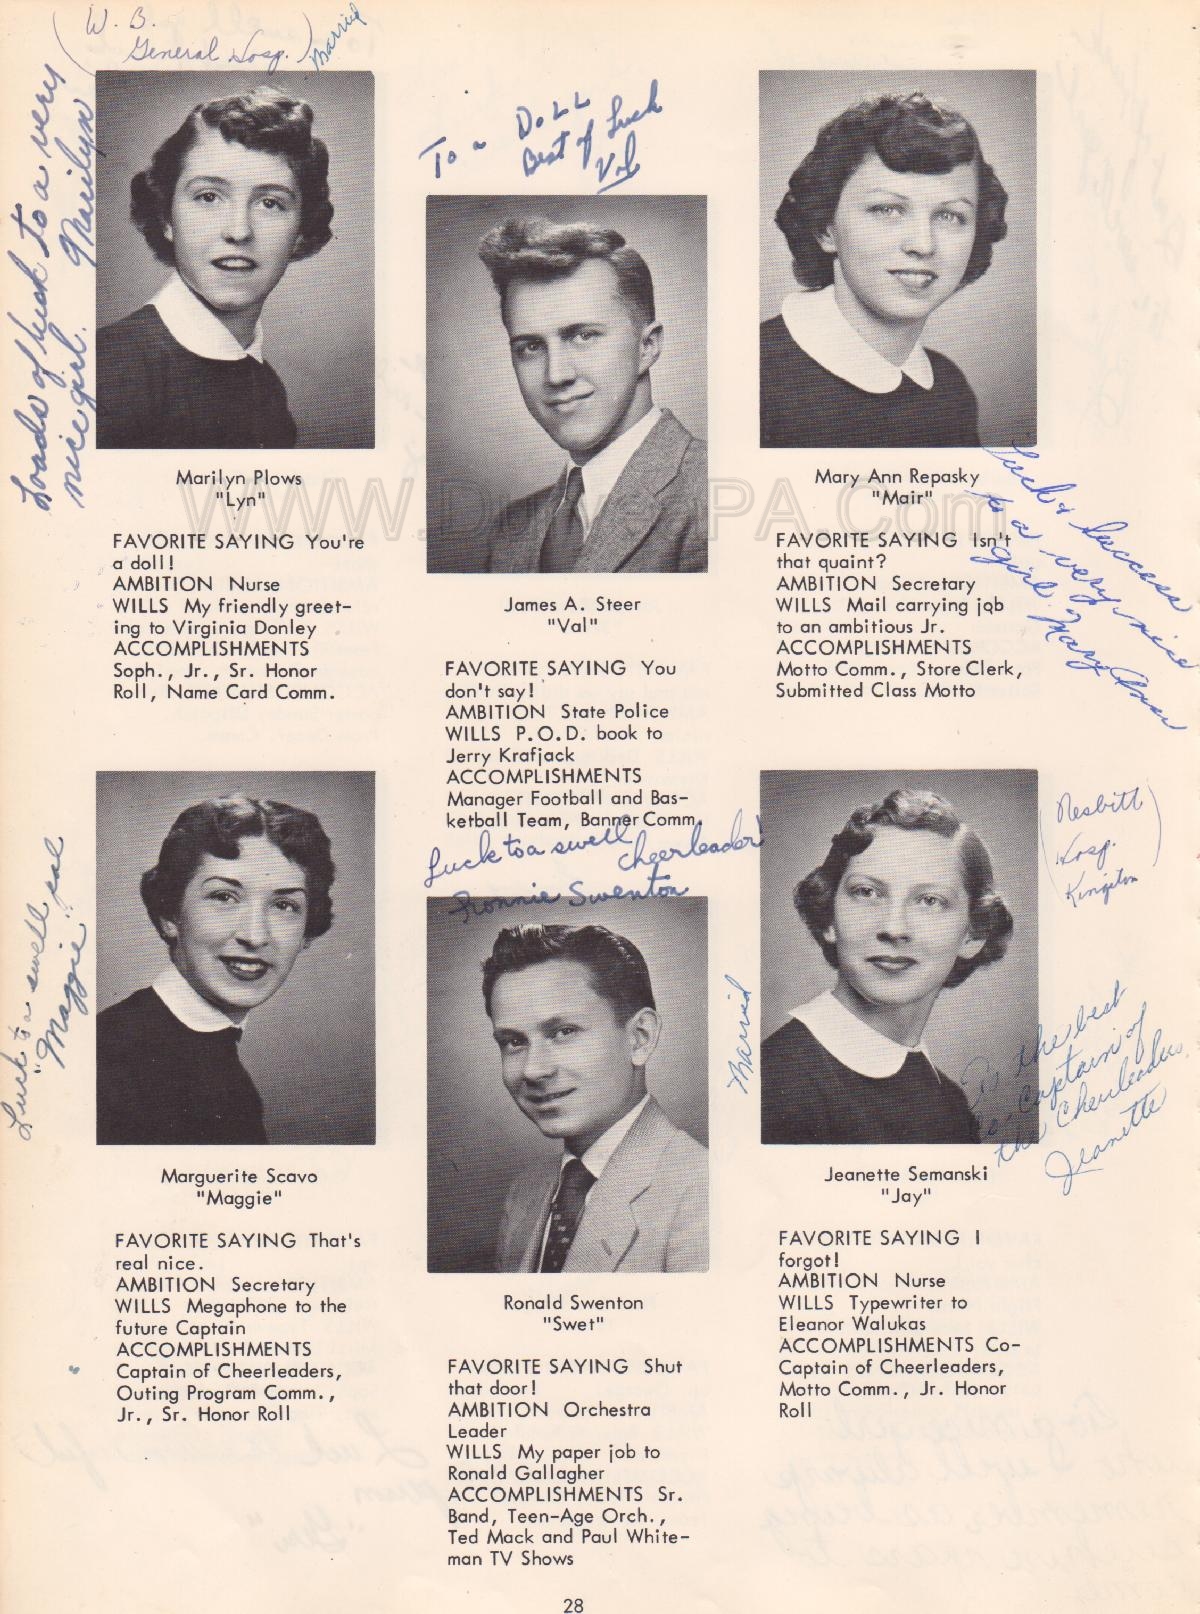 (W. B.
General Hosp.)
Married
Loads of luck to a very
nice girl. Marilyn
To a DOLL
Best of Luck
Val
Marilyn Plows
"Lyn"
FAVORITE SAYING You're
a doll!
AMBITION Nurse
WILLS My friendly greet-
ing to Virginia Donley
ACCOMPLISHMENTS
Soph., Jr., Sr. Honor
Roll, Name Card Comm.
James A. Steer
"Val"
FAVORITE SAYING You
don't say!
AMBITION State Police
WILLS P.O.D. book to
Jerry Krafjack
ACCOMPLISHMENTS
Manager Football and Bas-
ketball Team, Banner Comm.
Mary Ann Repasky
"Mair"
FAVORITE SAYING Isn't
that quaint?
AMBITION Secretary
WILLS Mail carrying job
to an ambitious Jr.
ACCOMPLISHMENTS
Motto Comm., Store Clerk,
Submitted Class Motto
Luck & Success
to a very nice
girl. Mary Ann
Luck to a swell gal
"Maggie"
Marguerite Scavo
"Maggie"
FAVORITE SAYING That's
real nice.
AMBITION Secretary
WILLS Megaphone to the
future Captain
ACCOMPLISHMENTS
Captain of Cheerleaders,
Outing Program Comm.,
Jr., Sr. Honor Roll
Luck to a swell cheerleader!
Ronnie Swenton
Ronald Swenton
"Swet"
FAVORITE SAYING Shut
that door!
AMBITION Orchestra
Leader
WILLS My paper job to
Ronald Gallagher
ACCOMPLISHMENTS Sr.
Band, Teen-Age Orch.,
Ted Mack and Paul White-
man TV Shows
Married
(Nesbitt
Hosp.
Kingston)
To the best
Co-Captain of
the Cheerleaders.
Jeanette
Jeanette Semanski
"Jay"
FAVORITE SAYING I
forgot!
AMBITION Nurse
WILLS Typewriter to
Eleanor Walukas
ACCOMPLISHMENTS Co-
Captain of Cheerleaders,
Motto Comm., Jr. Honor
Roll
28